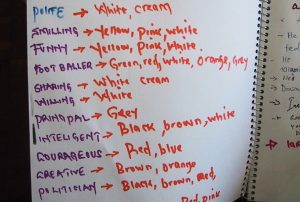 POLITE → White, cream
SMILLING → Yellow, Pink, white
FUNNY → Yellow, Pink, White.
FOOT BALLER → Green, red, white, orange, Grey
SHARING → White cream
WILLING → White
PRINCIPAL → Grey
INTELIGENT → Black, brown, white
COURAGEOUS → Red, blue
CREATIVE → Brown, orange
POLITICIAN → Black, brown, red,
Red, pink